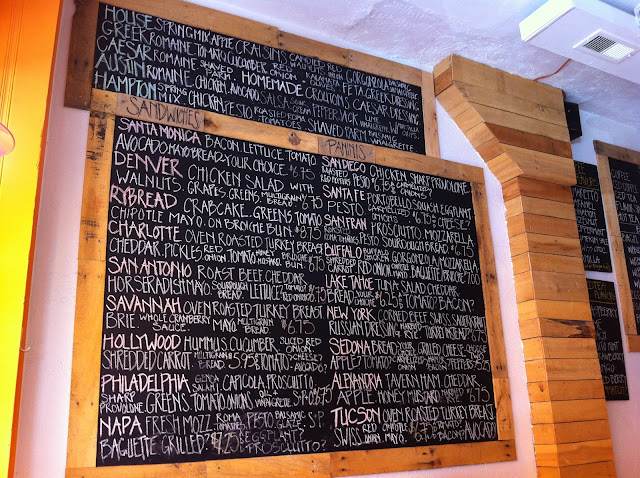 HOUSE SPRING MIX APPLE CRAISINS CANDIED RED ONION GORGONZOLA
GREEK ROMAINE TOMATO CUCUMBER RED ONION FETA GREEK DRESSING
CAESAR ROMAINE SHAVED PARM HOMEMADE CROUTONS CAESAR DRESSING
AUSTIN ROMAINE CHICKEN AVOCADO SALSA SOUR CREAM PEPPERJACK LIME TORTILLA
HAMPTON SPRING MIX CHICKEN PESTO ROASTED ROMA TOMATOES SHAVED PARM BALSAMIC VINAIGRETTE
SANDWICHES
SANTA MONICA BACON LETTUCE TOMATO
AVOCADO MAYO BREAD YOUR CHOICE $6.75
DENVER CHICKEN SALAD WITH
WALNUTS. GRAPES. GREENS. MULTIGRAIN BREAD $6.75
RYBREAD CRABCAKE. GREENS. TOMATO
CHIPOTLE MAYO. ON BRIOCHE BUN. $8.75
CHARLOTTE OVEN ROASTED TURKEY BREAST
CHEDDAR PICKLES. RED ONION TOMATO HONEY MUSTARD. BRIOCHE BUN $6.75
SAN ANTONIO ROAST BEEF CHEDDAR
HORSERADISH MAYO SOURDOUGH BREAD. LETTUCE TOMATO RED ONION $6.75
SAVANNAH OVEN ROASTED TURKEY BREAST
BRIE WHOLE CRANBERRY SAUCE MAYO MULTIGRAIN BREAD $6.75
HOLLYWOOD HUMMUS CUCUMBER SLICED RED ONION
SHREDDED CARROT MULTIGRAIN BREAD 5.95 TOMATO CHEESE? AVOCADO?
PHILADELPHIA GENOA SALAMI CAPICOLA PROSCIUTTO
SHARP PROVOLONE GREENS. TOMATO ONIONS OIL + VINAIGRETTE S+P
NAPA FRESH MOZZ. ROMA TOMATOES PESTO BALSAMIC GLAZE S+P
BAGUETTE GRILLED? $7.25 EGGPLANT? PROSCIUTTO?
PANINIS
SAN DIEGO CHICKEN SHARP PROVOLONE
ROASTED RED PEPPERS PESTO $6.75 CARMELIZED ONIONS
SANTA FE PORTOBELLO SQUASH EGGPLANT
PESTO CARMELIZED ONIONS $6.75 CHEESE?
SAN FRAN PROSCIUTTO MOZZARELLA
PESTO SOURDOUGH BREAD $6.75
BUFFALO CHICKEN GORGONZOLA MOZZARELLA
SHREDDED CARROT RED ONION CHIPOTLE MAYO BAGUETTE 7.00
LAKE TAHOE TUNA SALAD CHEDDAR
BREAD YOUR CHOICE $6.25 TOMATO? BACON?
NEW YORK CORNED BEEF SWISS SAUERKRAUT
RUSSIAN DRESSING MARBLED RYE TRY TURKEY INSTEAD
SEDONA BREAD YOUR CHOICE GRILLED CHEESE CHOOSE
APPLE? TOMATO?
ALEXANDRIA TAVERN HAM CHEDDAR
APPLE HONEY MUSTARD $6.75
TUCSON OVEN ROASTED TURKEY BREAST
SWISS RED ONION CHIPOTLE MAYO $6.75 BACON? AVOCADO?